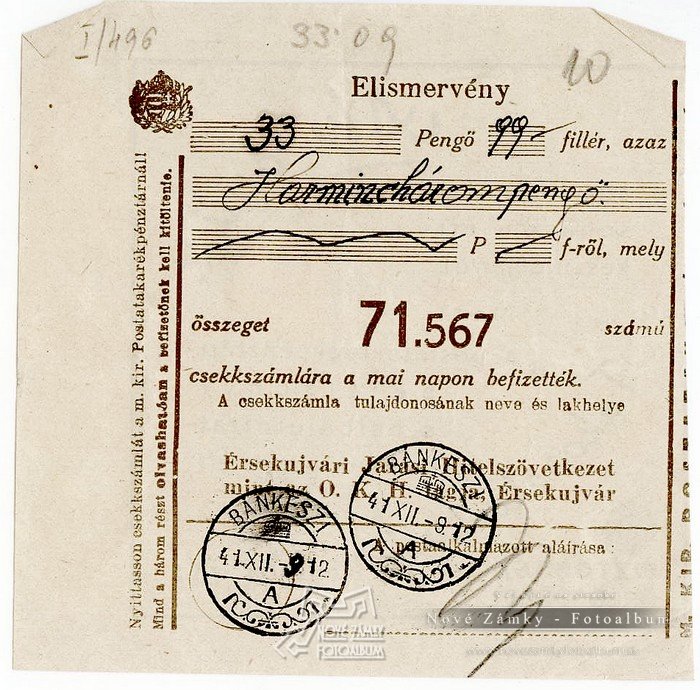 I/496
33·09
10
Elismervény
33 Pengő 99- fillér, azaz
Harminchárompengő.
P f-ről, mely
összeget 71.567 számú
csekkszámlára a mai napon befizették.
A csekkszámla tulajdonosának neve és lakhelye
Érsekujvári Járási Hitelszövetkezet
mint az O. K. H. tagja, Érsekujvár
A postaalkalmazott aláírása:
BÁNKESZI
41.XII.-9.12
A
BÁNKESZI
41.XII.-9.12
Nyittasson csekkszámlát a m. kir. Postatakarékpénztárnál!
Mind a három részt olvashatóan a befizetőnek kell kitöltenie.
M. KIR.
NOVÉ ZÁMKY
FOTOALBUM
Nové Zámky - Fotoalbum